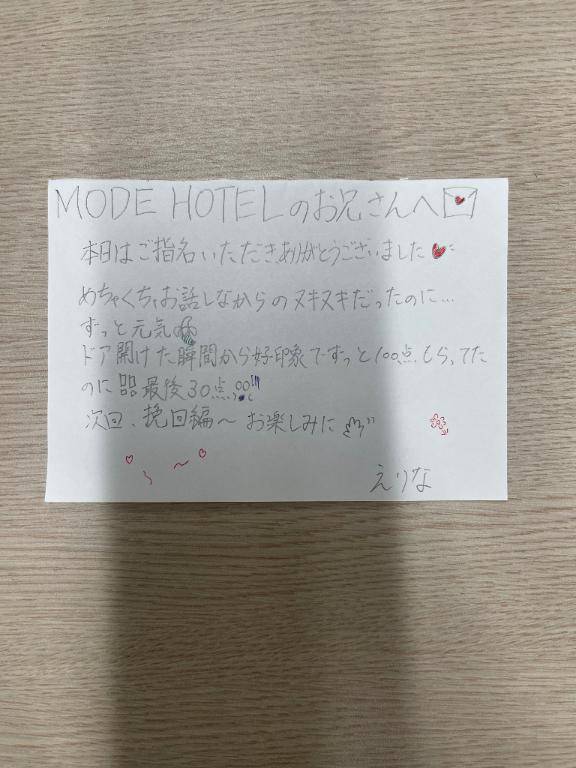 MODE HOTELのお兄さんへ
本日はご指名いただきありがとうございました
めちゃくちゃお話しながらのヌキヌキだったのに…
ずっと元気
ドア開けた瞬間から好印象でずっと100点もらってた
のに最後30点!!!
次回、挽回編〜お楽しみに
えりな